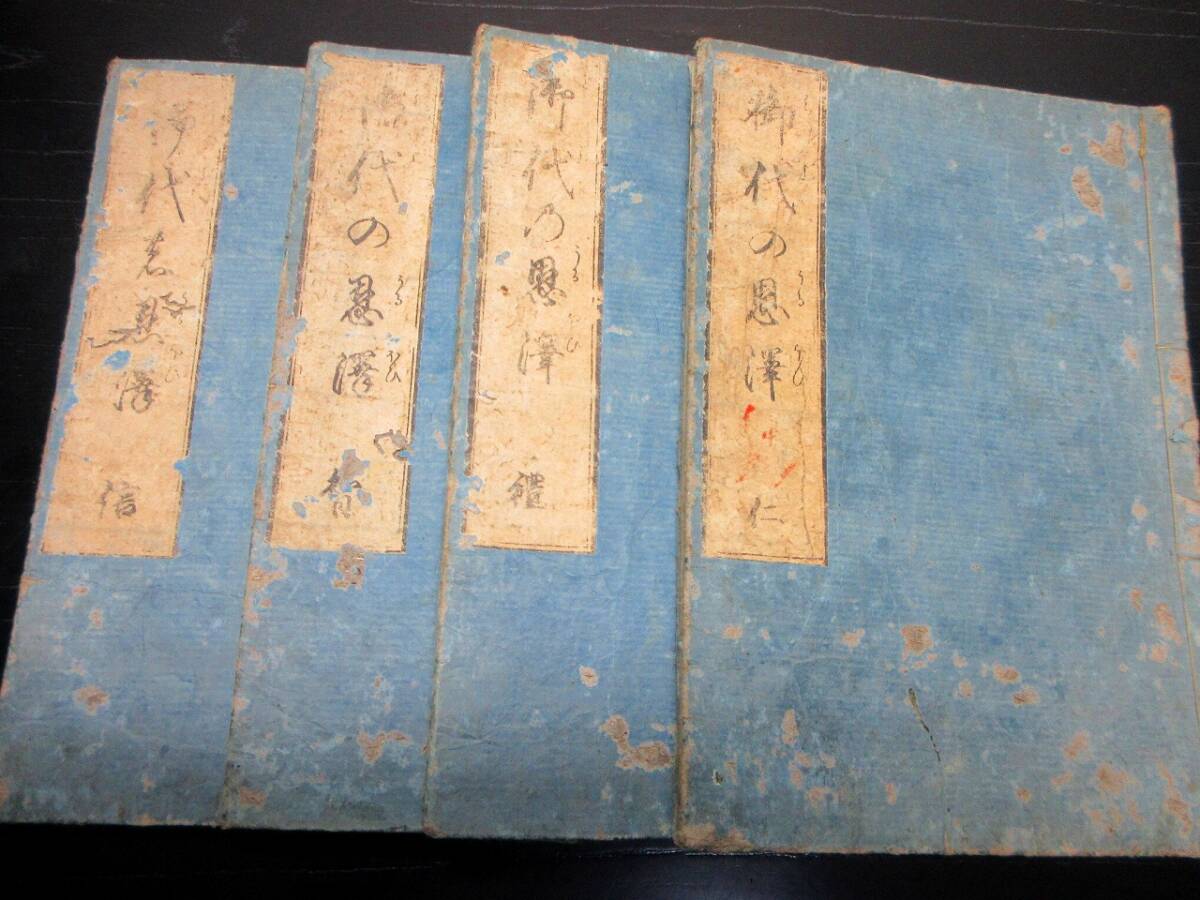 御代の恩澤 仁
御代乃恩澤 禮
御代の恩澤 智
御代の恩澤 信